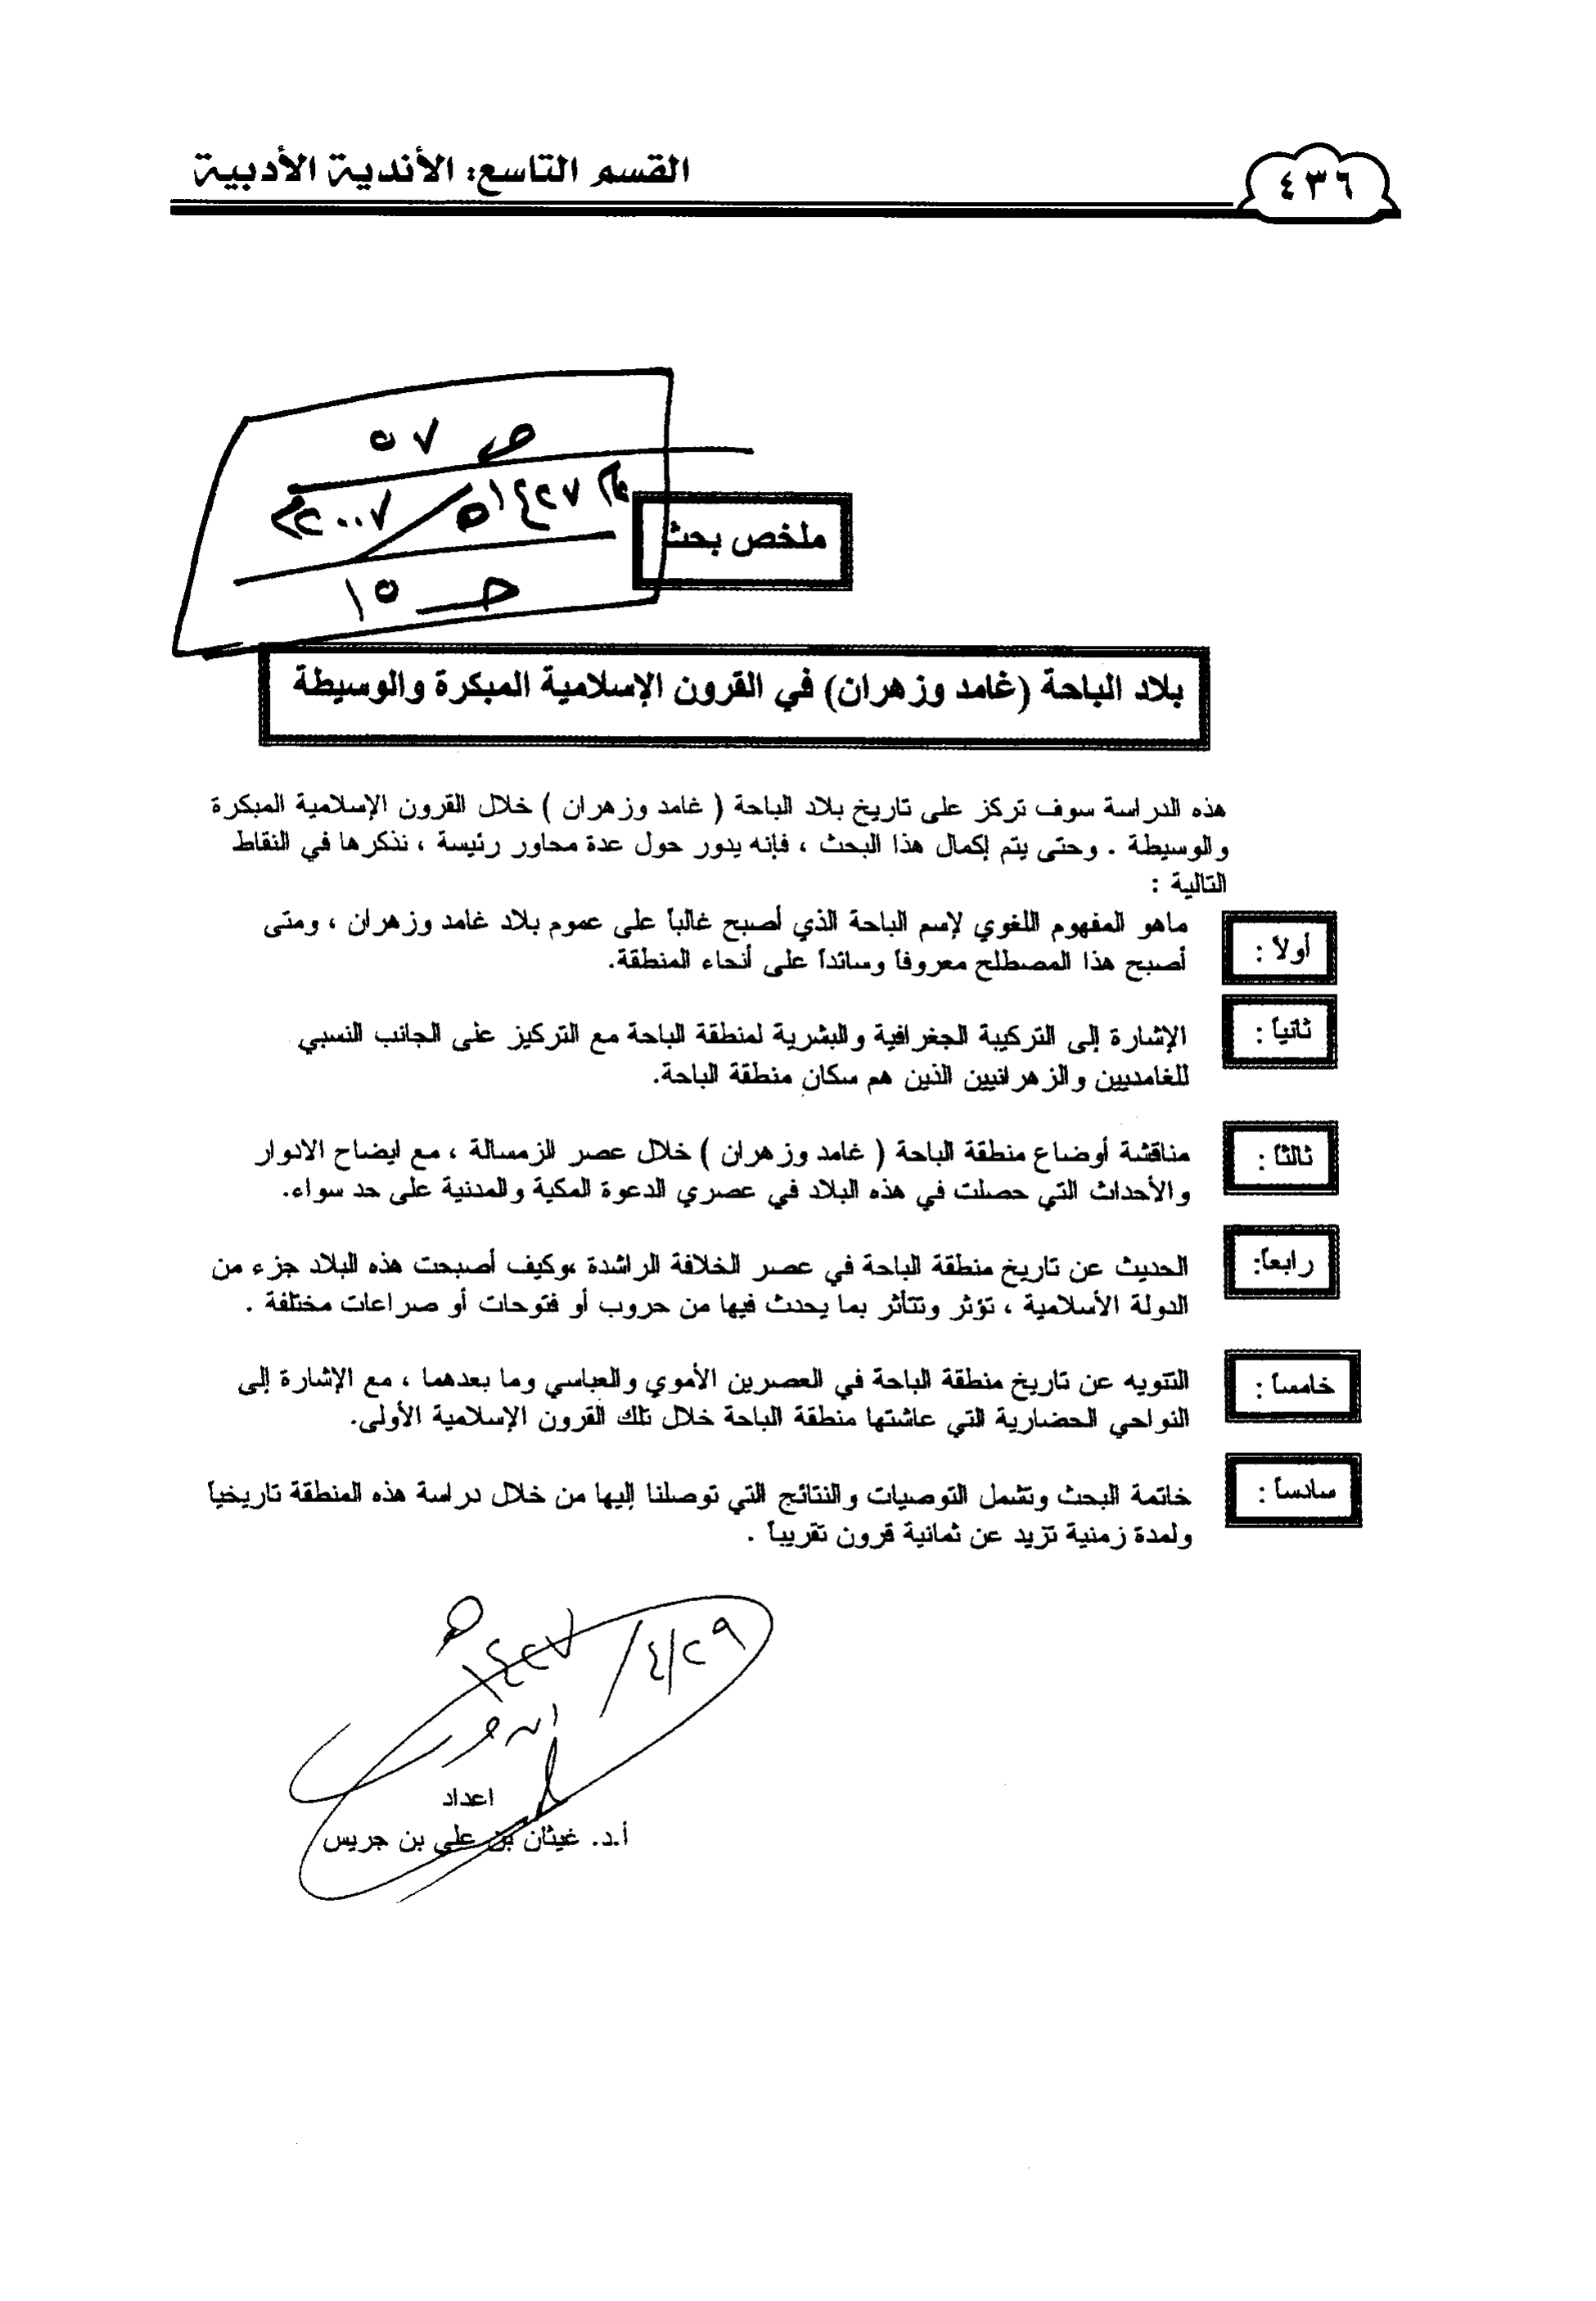 ٤٣٦
القسم التاسع: الأندية الأدبية
ص ٥٧
عام ١٤٢٧هـ / ٢٠٠٧م
جـ ١٥
ملخص بحث
بلاد الباحة (غامد وزهران) في القرون الإسلامية المبكرة والوسيطة
هذه الدراسة سوف تركز على تاريخ بلاد الباحة ( غامد وزهران ) خلال القرون الإسلامية المبكرة
والوسيطة . وحتى يتم إكمال هذا البحث ، فإنه يدور حول عدة محاور رئيسة ، نذكرها في النقاط
التالية :
أولاً :
ماهو المفهوم اللغوي لإسم الباحة الذي أصبح غالباً على عموم بلاد غامد وزهران ، ومتى
أصبح هذا المصطلح معروفاً وسائداً على أنحاء المنطقة.
ثانياً :
الإشارة إلى التركيبة الجغرافية والبشرية لمنطقة الباحة مع التركيز على الجانب النسبي
للغامديين والزهرانيين الذين هم سكان منطقة الباحة.
ثالثاً :
مناقشة أوضاع منطقة الباحة ( غامد وزهران ) خلال عصر الزمسالة ، مع ايضاح الادوار
والأحداث التي حصلت في هذه البلاد في عصري الدعوة المكية والمدنية على حد سواء.
رابعاً:
الحديث عن تاريخ منطقة الباحة في عصر الخلافة الراشدة ،وكيف أصبحت هذه البلاد جزء من
الدولة الأسلامية ، تؤثر وتتأثر بما يحدث فيها من حروب أو فتوحات أو صراعات مختلفة .
خامساً :
التنويه عن تاريخ منطقة الباحة في العصرين الأموي والعباسي وما بعدهما ، مع الإشارة إلى
النواحي الحضارية التي عاشتها منطقة الباحة خلال تلك القرون الإسلامية الأولى.
سادساً :
خاتمة البحث وتشمل التوصيات والنتائج التي توصلنا إليها من خلال دراسة هذه المنطقة تاريخياً
ولمدة زمنية تزيد عن ثمانية قرون تقريباً .
٢٩/٤/١٤٢٧هـ
اعداد
أ.د. غيثان بن علي بن جريس